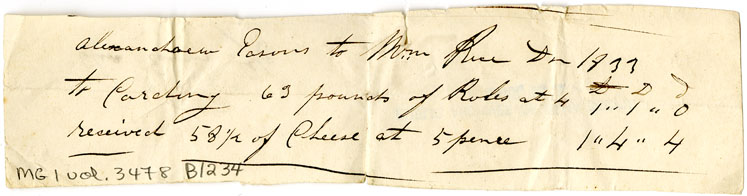 Alexandrew Easons to Wm Rice Dr 1833
to Carding 63 pounds of Roles at 4 1"1"0
received 58½ of Cheese at 5 pence 1"4"4
MG 1 vol. 3478 B1234